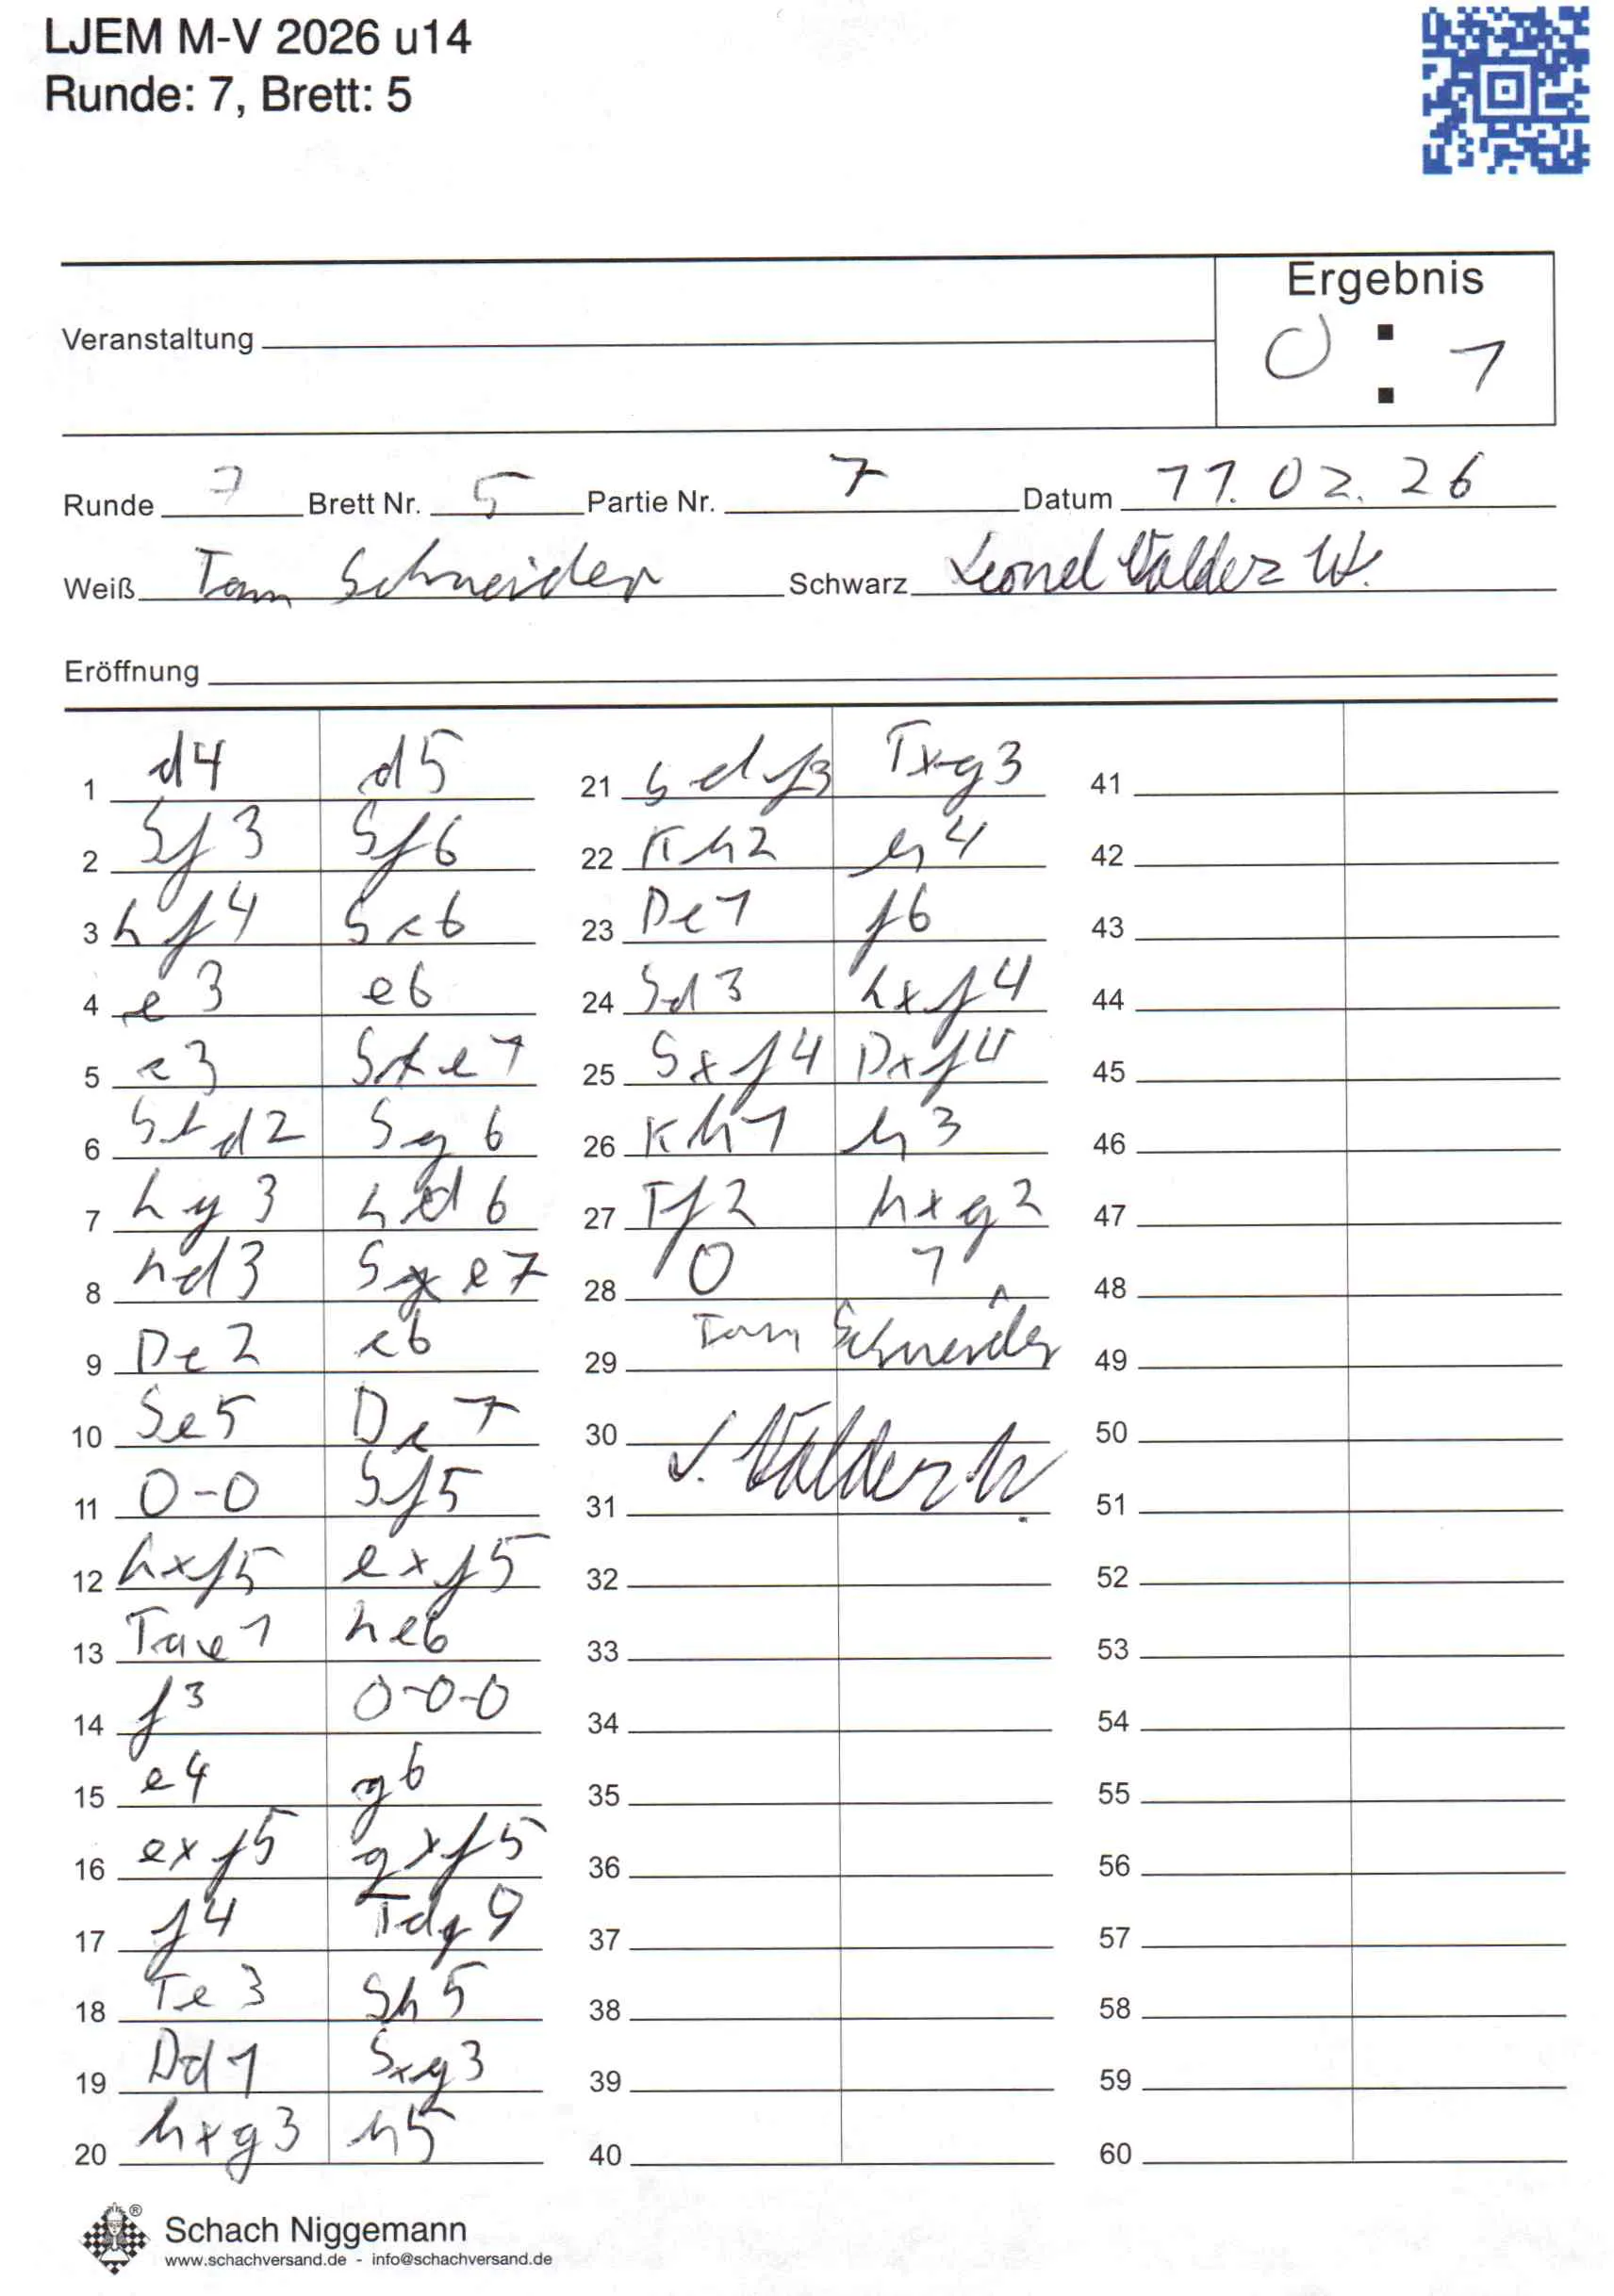 LJEM M-V 2026 u14
Runde: 7, Brett: 5
Ergebnis
Veranstaltung
0 : 1
Runde 7 Brett Nr. 5 Partie Nr. 7 Datum 11.02.26
Weiß Tom Schneider Schwarz Leonel Valdez W.
Eröffnung
1 d4 d5
2 Sf3 Sf6
3 Lf4 Sc6
4 e3 e6
5 c3 Se7
6 Sbd2 Sg6
7 Lg3 Ld6
8 Ld3 Sge7
9 De2 c6
10 Se5 Dc7
11 0-0 Sf5
12 Lxf5 exf5
13 Tae1 Le6
14 f3 0-0-0
15 e4 g6
16 exf5 gxf5
17 f4 Tdg8
18 Te3 Sh5
19 Dd1 Sxg3
20 hxg3 h5
21 Sdf3 Txg3
22 Kh2 h4
23 De1 f6
24 Sd3 Lxf4
25 Sxf4 Dxf4
26 Kh1 h3
27 Tf2 hxg2
28 0 1
29 Tom Schneider
30 L. Valdez W.
31
32
33
34
35
36
37
38
39
40
41
42
43
44
45
46
47
48
49
50
51
52
53
54
55
56
57
58
59
60
Schach Niggemann
www.schachversand.de - info@schachversand.de